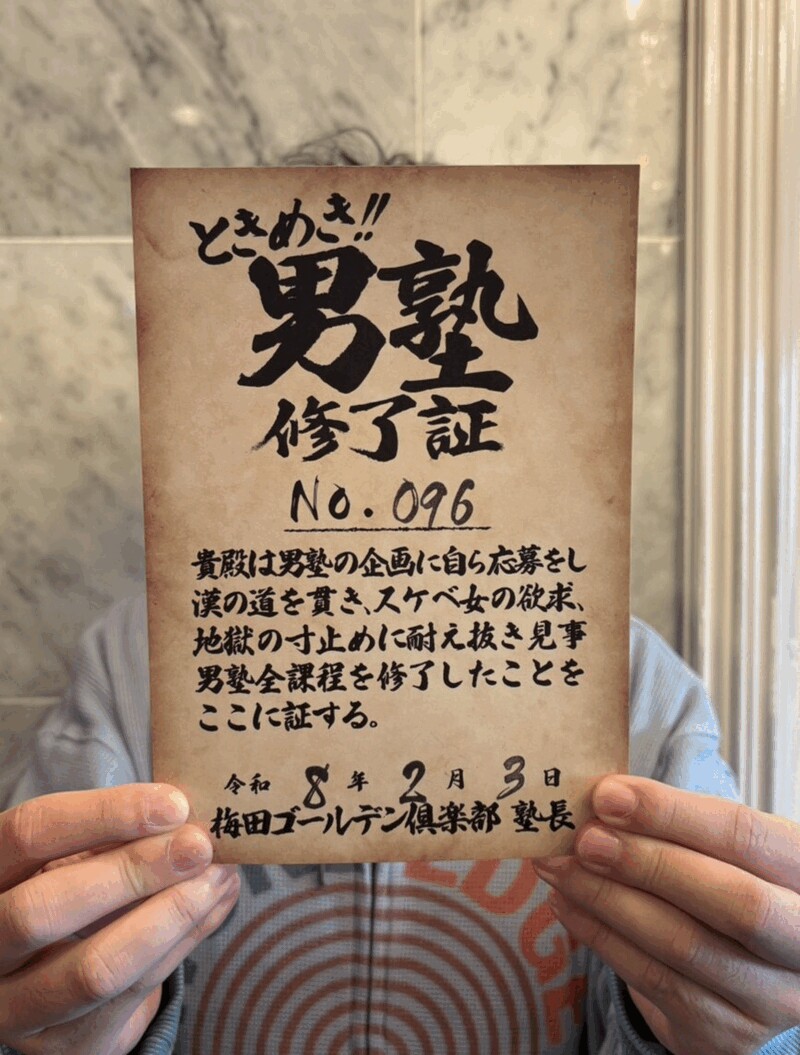 ときめき!!
男塾
修了証
No. 096
貴殿は男塾の企画に自ら応募をし
漢の道を貫き、スケベ女の欲求、
地獄の寸止めに耐え抜き見事
男塾全課程を修了したことを
ここに証する。
令和 8 年 2 月 3 日
梅田ゴールデン倶楽部 塾長
EDGE